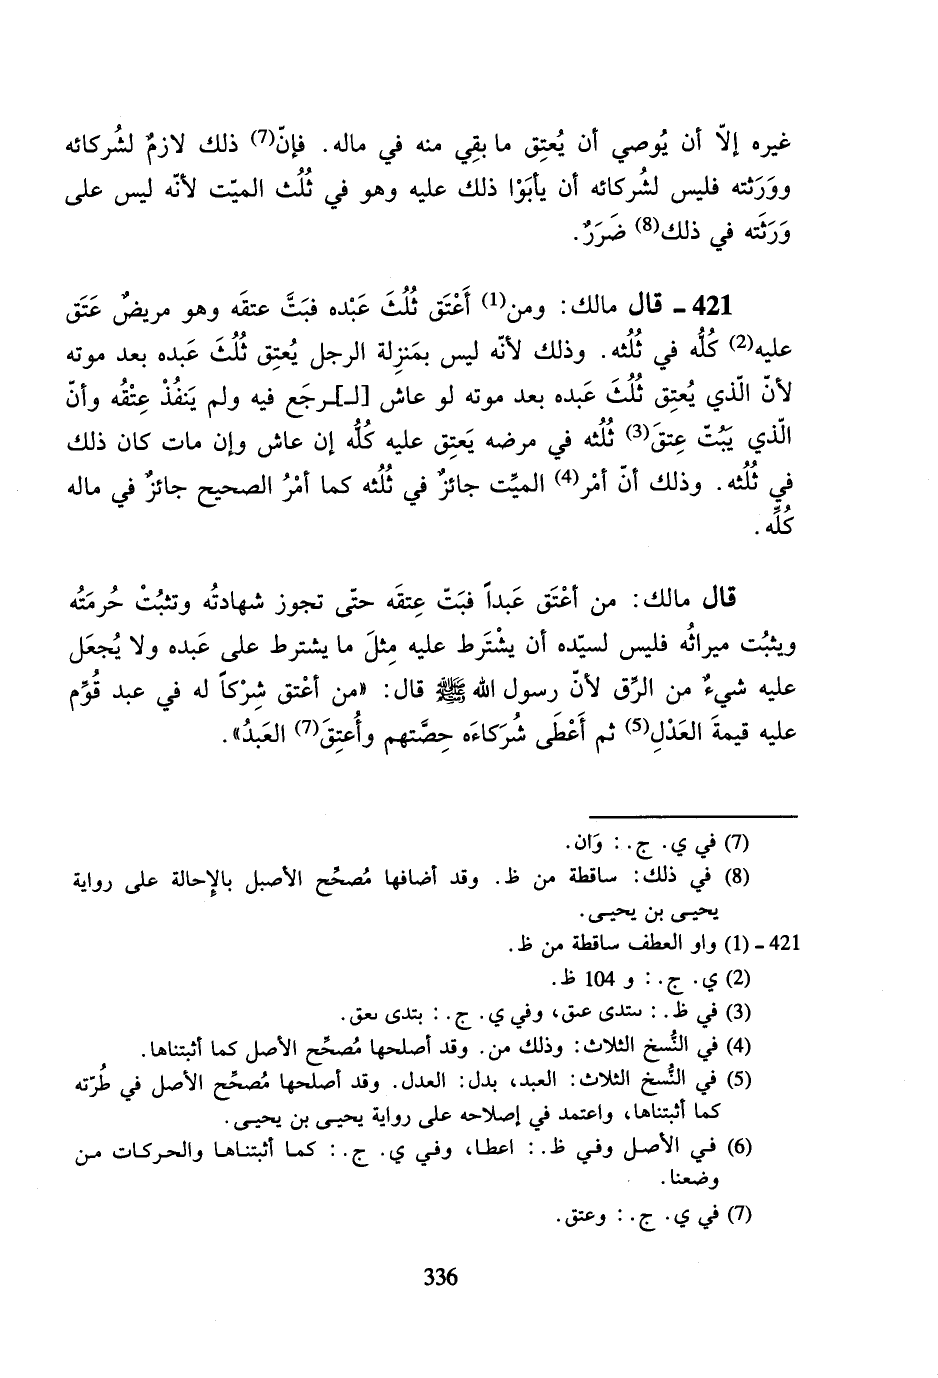 غيره إلاّ أن يُوصي أن يُعتِق ما بقِي منه في ماله. فإنّ(7) ذلك لازمٌ لشُركائه
ووَرَثته فليس لشُركائه أن يأبَوْا ذلك عليه وهو في ثُلُث الميّت لأنّه ليس على
وَرَثَته في ذلك(8) ضَرَرٌ.
421 - قال مالك: ومن(1) أَعْتَق ثُلُثَ عَبْده فبَتَّ عتقَه وهو مريضٌ عَتَق
عليه(2) كُلُّه في ثُلُثه. وذلك لأنّه ليس بمَنزِلة الرجل يُعتِق ثُلُثَ عَبده بعد موته
لأنّ الّذي يُعتِق ثُلُثَ عَبده بعد موته لو عاش [لـ]ـرجَع فيه ولم يَنفُذْ عِتْقُه وأنّ
الّذي يَبُتّ عِتقَ(3) ثُلُثه في مرضه يَعتِق عليه كُلُّه إن عاش وإن مات كان ذلك
في ثُلُثه. وذلك أنّ أمْر(4) الميِّت جائزٌ في ثُلُثه كما أمْرُ الصحيح جائزٌ في ماله
كُلِّه.
قال مالك: من أعْتَق عَبداً فبَتّ عِتقَه حتّى تجوز شهادتُه وتثبُتْ حُرمَتُه
ويثبُت ميراثُه فليس لسيّده أن يشْتَرط عليه مِثلَ ما يشترط على عَبده ولا يُجعَل
عليه شيءٌ من الرِّق لأنّ رسول الله ﷺ قال: «من أعْتق شِرْكاً له في عبد قُوِّم
عليه قيمةَ العَدْلِ(5) ثم أَعْطَى شُرَكاءَه حِصَّتهم وأُعتِقَ(7) العَبدُ».
(7) في ي. ج. : وَان.
(8) في ذلك: ساقطة من ظ. وقد أضافها مُصحِّح الأصبل بالإحالة على رواية
يحيـى بن يحيـى.
421 - (1) واو العطف ساقطة من ظ.
(2) ي. ج. : و 104 ظ.
(3) في ظ. : ستدى عىق، وفي ي. ج. : بتدى ىعق.
(4) في النُّسخ الثلاث: وذلك من. وقد أصلحها مُصحِّح الأصل كما أثبتناها.
(5) في النُّسخ الثلاث: العبد، بدل: العدل. وقد أصلحها مُصحِّح الأصل في طُرّته
كما أثبتناها، واعتمد في إصلاحه على رواية يحيـى بن يحيـى.
(6) في الأصل وفي ظ. : اعطا، وفي ي. ج. : كما أثبتناها والحركات من
وضعنا.
(7) في ي. ج. : وعتق.
336